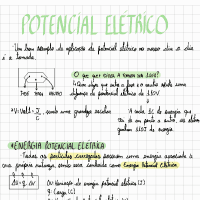 POTENCIAL ELÉTRICO
Um bom exemplo da aplicação do potencial elétrico no nosso dia a dia
é a tomada.
O que quer dizer a tomada ser 110V?
Quer dizer que entre a fase e o neutro existe uma
diferença de potencial elétrico de 110V
FASE TERRA NEUTRO
* Volt = J/C, sendo uma grandeza escalar
A cada 1C de energia que
vai de um ponto a outro, os elétrons
ganham 110J de energia.
* ENERGIA POTENCIAL ELÉTRICA
Todas as partículas carregadas possuem uma energia associada à
sua própria natureza, sendo essa conhecida como Energia Potencial Elétrica.
ΔU = q . ΔV
ΔU = Variação de energia potencial elétrica (J)
q = Carga (C)